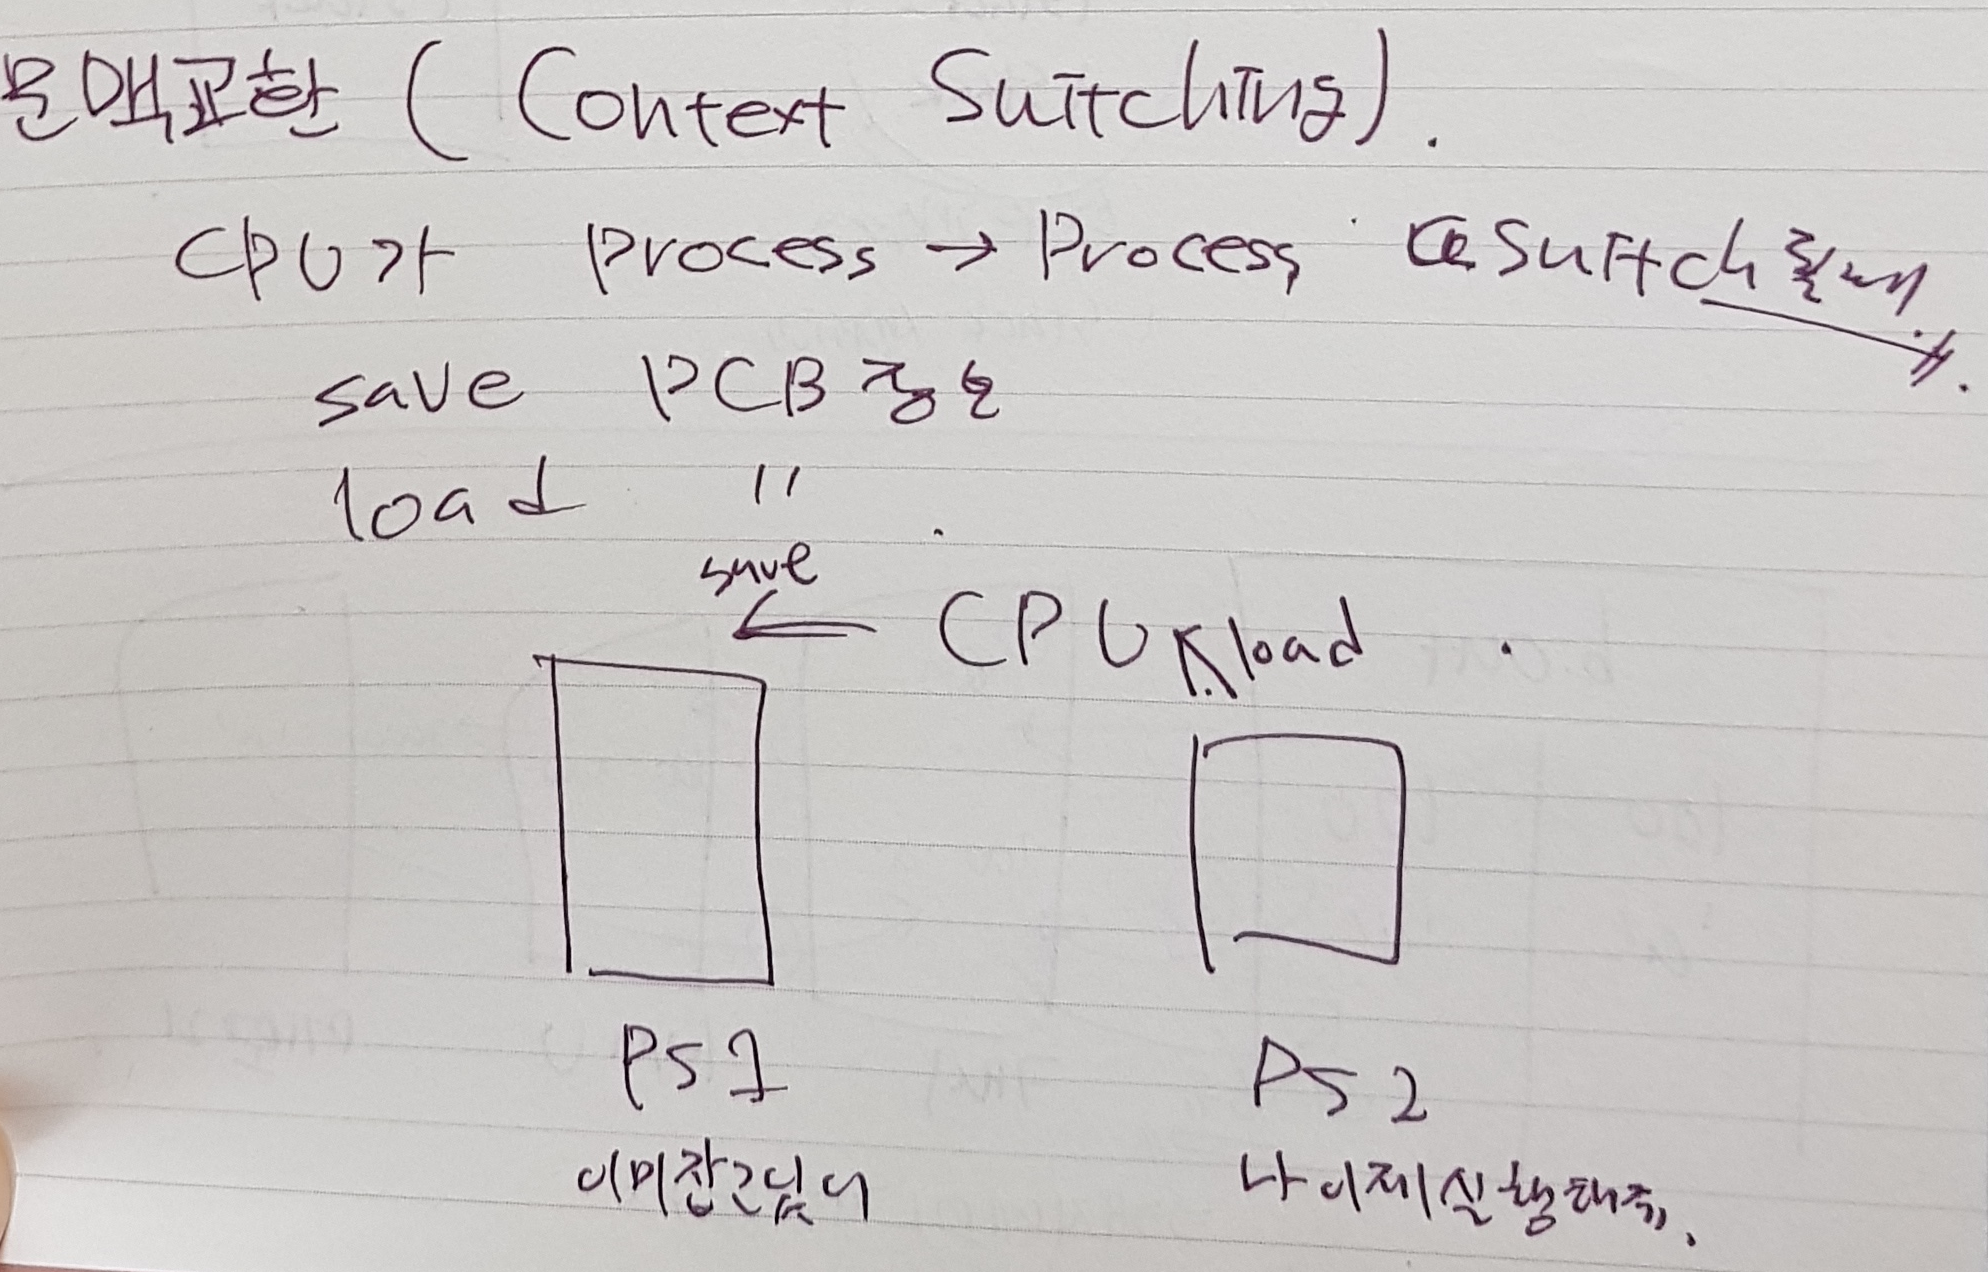 문맥교환 ( Context Switching).
CPU가 process → Process switch할때
save PCB 정보
load "
save
← CPU load
PS1 PS2
이미잡고있어 나이제실행해줘.